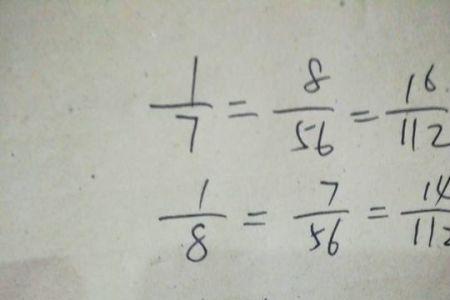 1/7 = 8/56 = 16/112
1/8 = 7/56 = 14/112